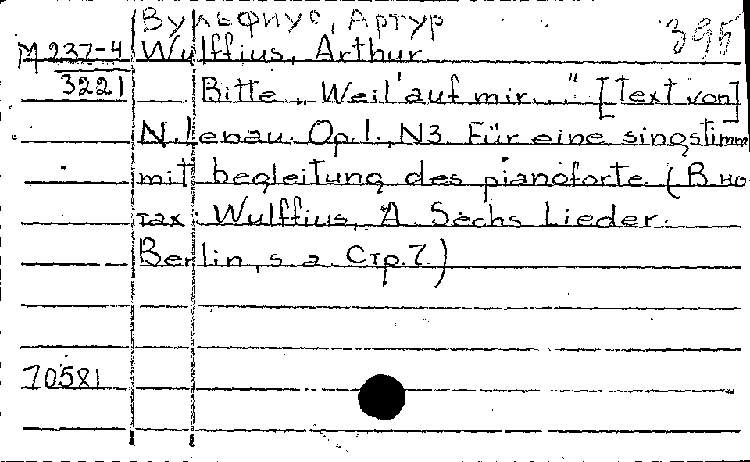 Вульфиус, Артур
395
М 237-4 Wulffius, Arthur
3221 Bitte „Weil' auf mir..." [Text von]
N. Lenau. Op. 1., N3. Für eine singstimm
mit begleitung des pianoforte. (В но
тах: Wulffius, A. Sechs Lieder.
Berlin, s. a. Стр. 7.)
70581